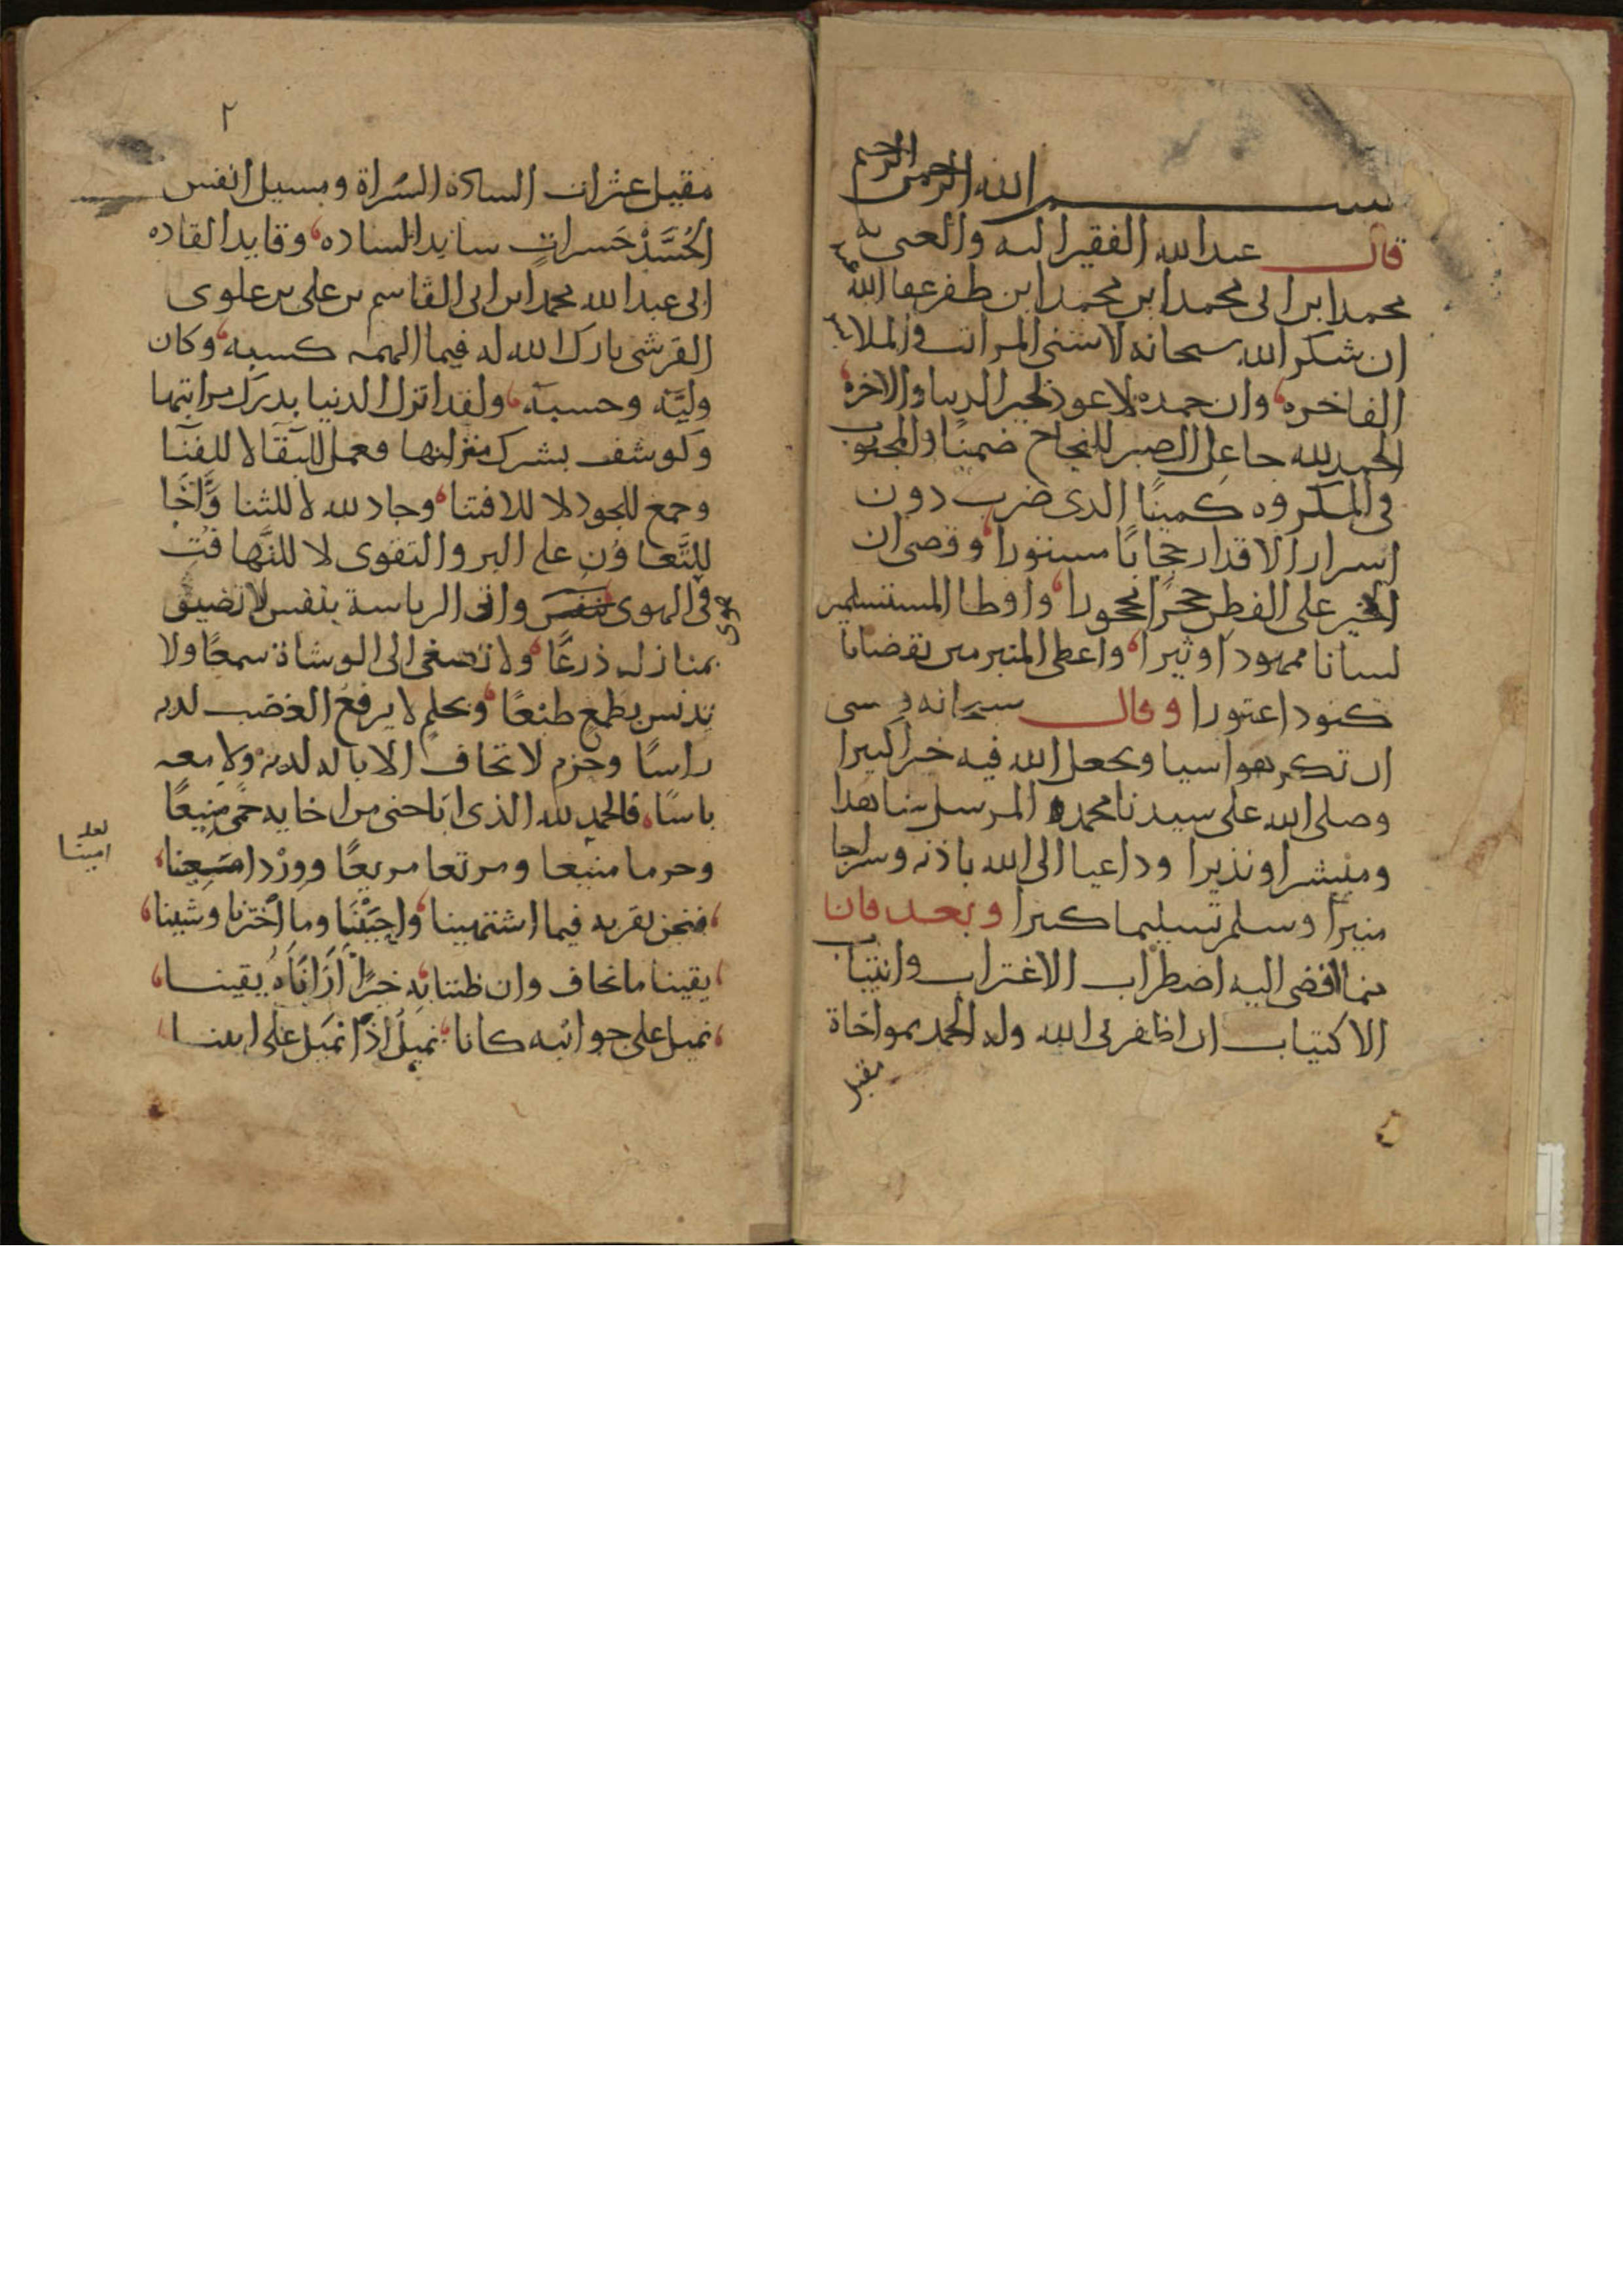 بسم الله الرحمن الرحيم
قال عبد الله الفقير اليه والغنى به
محمد ابن ابى محمد ابن محمد ابن ظفر عفا الله
ان شكر الله سبحانه لاسنى المراتب والملا
الفاخره وان حمده لاعوذ لخير الدنيا والاخره
الحمد لله جاعل الصبر للنجاح ضمنًا والمحبوب
فى المكروه كمينًا الذى ضرب دون
اسرار الاقدار حجابًا مستورا وقضى ان
على الفطن حجرًا محجورا واوطا المستسلمين
لسانا ممهودا وثيرا واعطى المتبرمين بقضايا
كنود اعتورا وقال سبحانه
ان تكرهوا سيا ويجعل الله فيه خيرا كبيرا
وصلى الله على سيدنا محمد المرسل شاهدا
ومبشرا ونذيرا وداعيا الى الله باذنه وسراجا
منيرا وسلم تسليما كبيرا وبعد فان
مما افضى اليه اضطراب الاغتراب وانتياب
الاكتياب ان اظفرنى الله وله الحمد بمواخاة
مقيل
٢
مقيل عثرات السادة السُراة ومسيل انفس
الحُسَّدْ حَسراتٍ سايد الساده وقايد القاده
ابى عبد الله محمد ابن ابى القاسم بن على بن علوى
القرشى بارك الله له فيما الهمه كسبه وكان
وليَّه وحسبه ولقد اترك الدنيا بدرك مراتبها
وكوشف بشرك منزلتها فعمل للبقا لا للفنا
وجمع للجود لا للاقتنا وجاد لله لا للثنا وَاخَا
للتَّعاوُنِ على البر والتقوى لا للتَّهافُت
فى الهوى واتى الرياسة بنفس لا تضيق
بمنازله ذرعًا ولا تصغى الى الوشاة سمعًا ولا
تدنس بطمع طبْعًا وبحلمٍ لا يرفع الغضب لديه
راسًا وحزم لا تخاف الايالة لديه ولا معه
باسًا فالحمد لله الذى اباحنى من اخايه حمًى منيعًا
وحرما منيعا ومرتعا مريعًا ووردا
فنحن بقربه فيما اشتهينا واحببْنَا وما اخترنا وشينا
يقينا ما نخاف وان ظننا به خيرًا ارَانَاهُ يقينا
نميل على جوانبه كانا نميل اذا نميل على ابينا